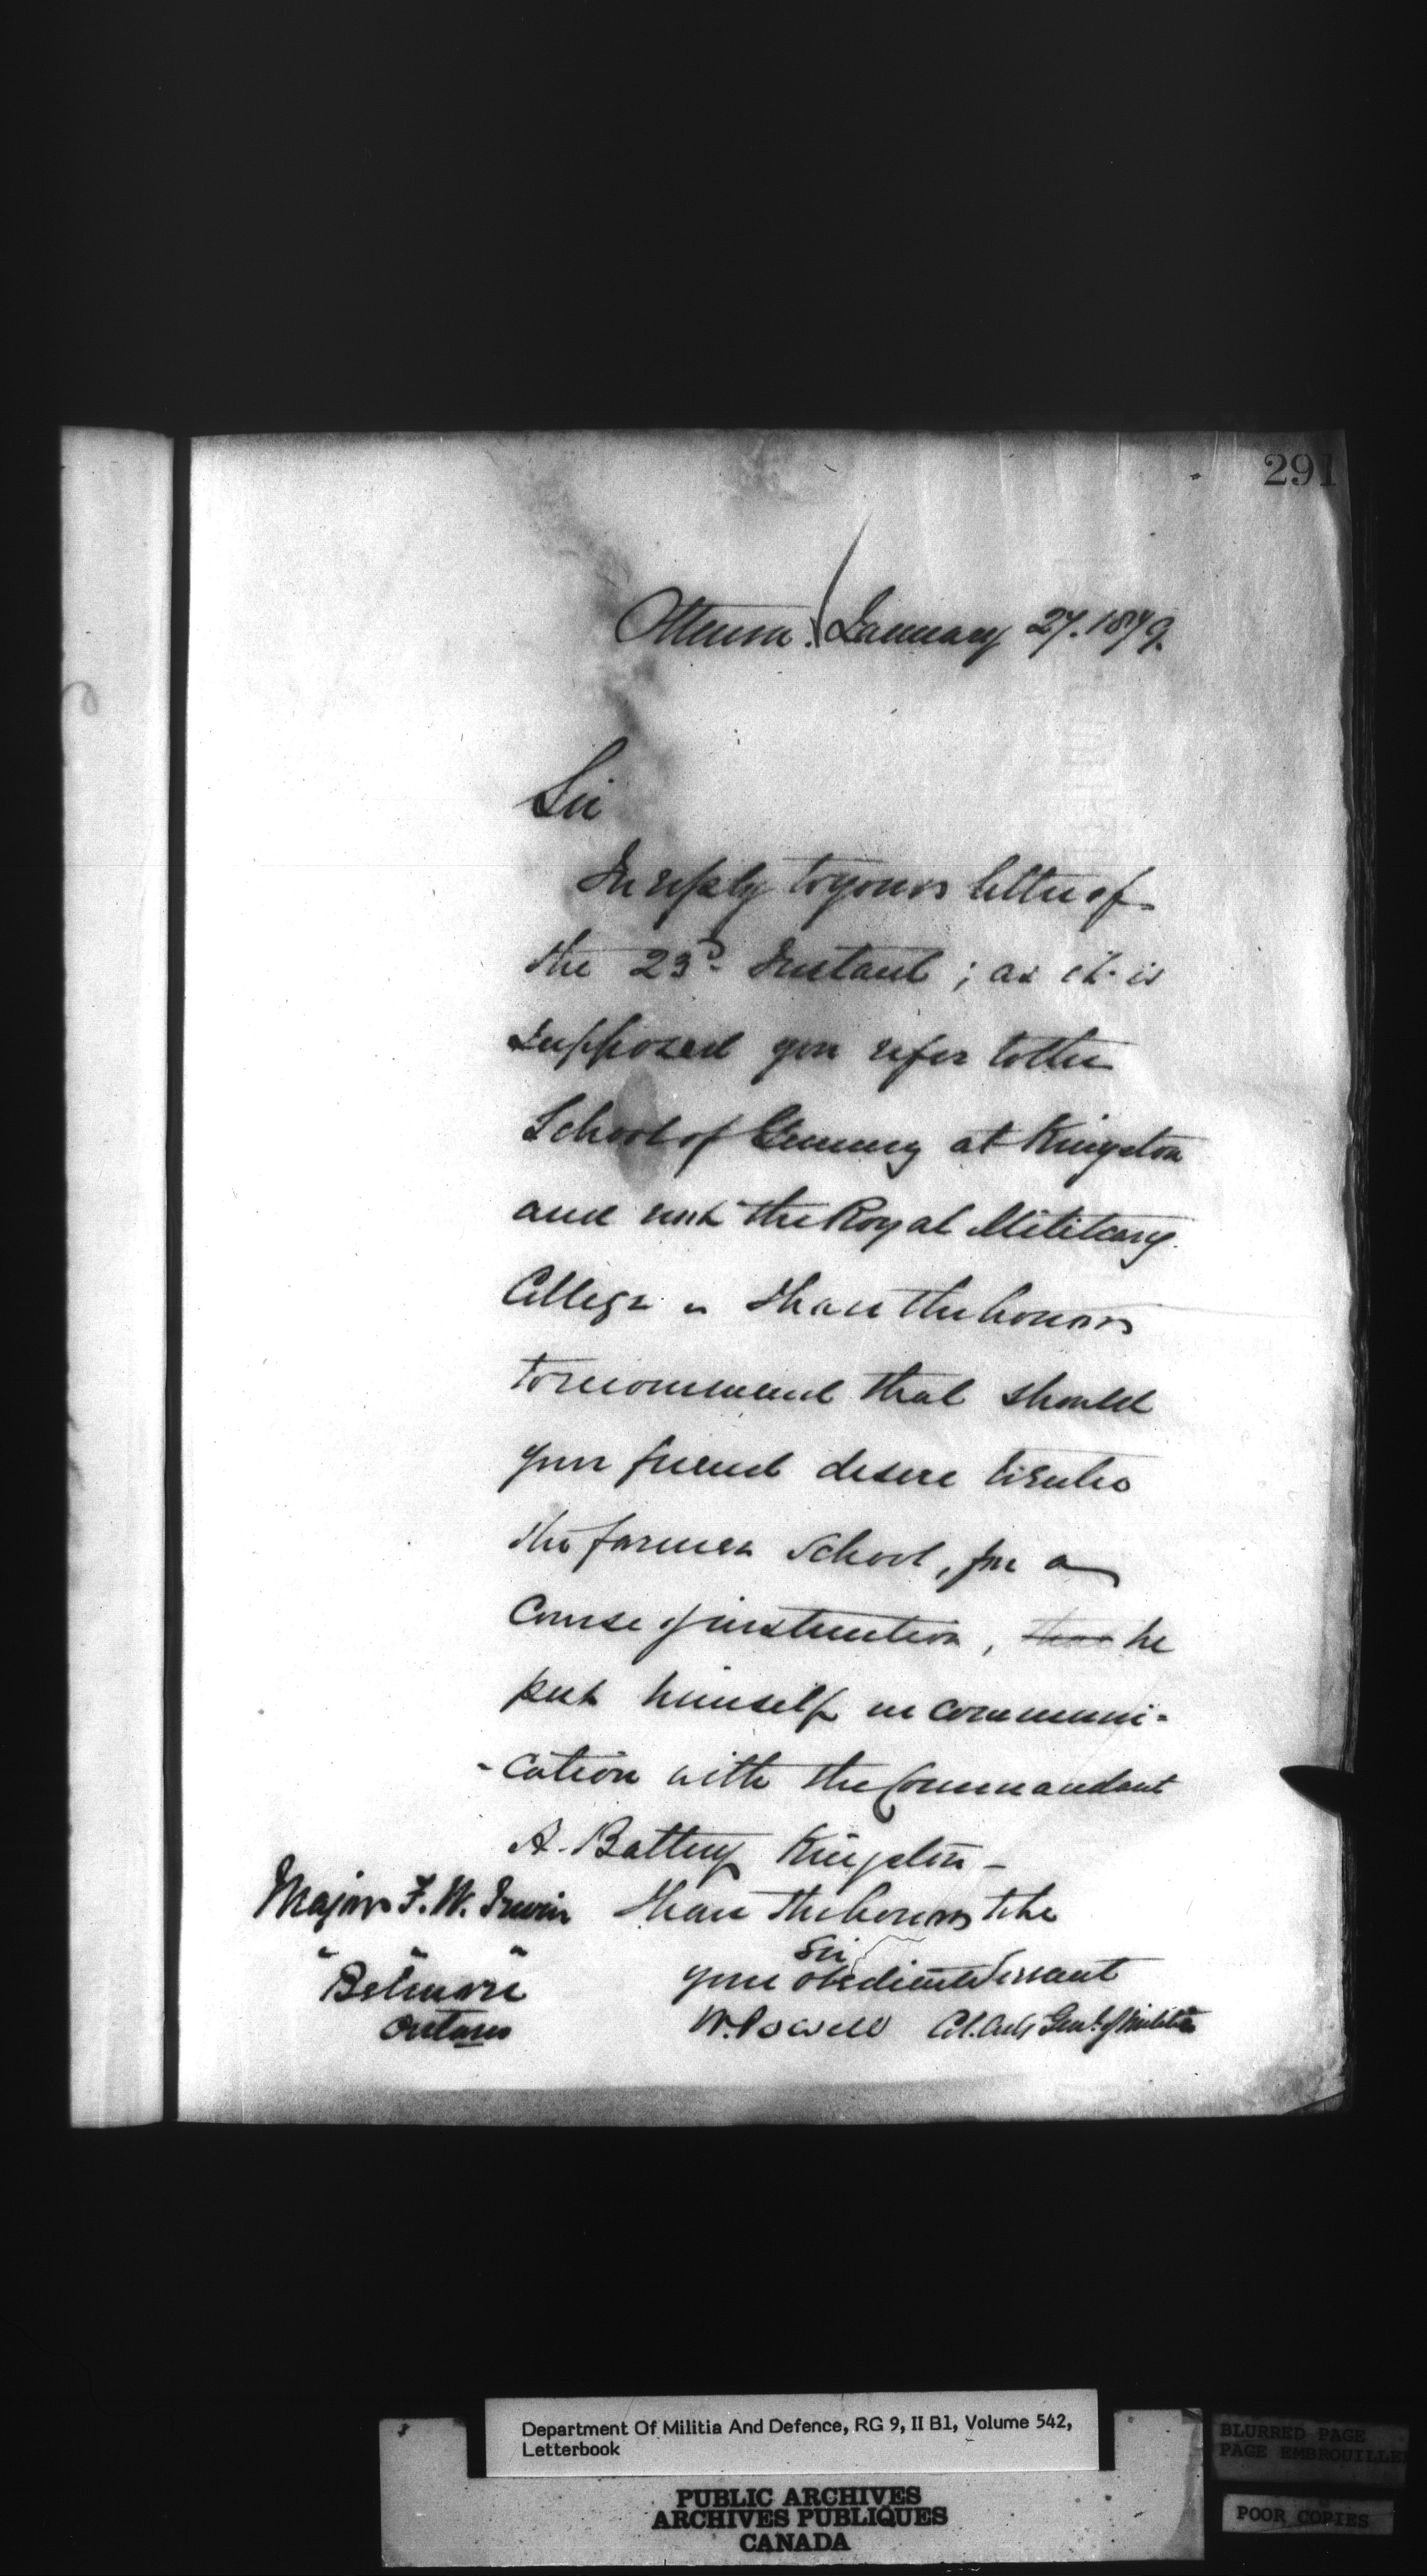 291
Ottawa. January 27. 1879.
Sir
In reply to your letter of
the 23D. Instant ; as it is
supposed you refer to the
School of Gunnery at Kingston
and not the Royal Military
College - I have the honor
to recommend that should
your friend desire to enter
the former School, for a
Course of instruction, that he
put himself in communi-
-cation with the Commandant
A. Battery Kingston -
I have the honor to be
Sir
your obedient Servant
W. Powell Col. Adj Genl. of Militia
Major F. W. Irwin
" Belmore "
Ontario
Department Of Militia And Defence, RG 9, II B1, Volume 542,
Letterbook
PUBLIC ARCHIVES
ARCHIVES PUBLIQUES
CANADA
BLURRED PAGE
PAGE EMBROUILLE
POOR COPIES